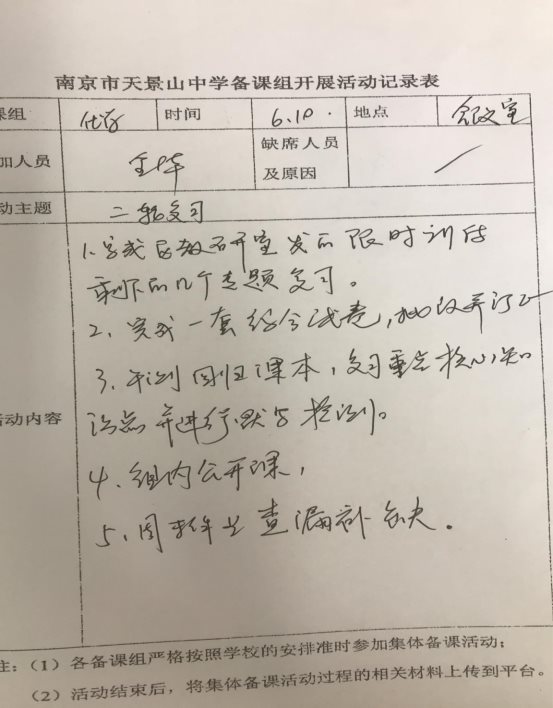 南京市天景山中学备课组开展活动记录表
课组 化学 时间 6.10. 地点 会议室
加人员 全体 缺席人员及原因 /
动主题 二轮复习
活动内容
1.完成区教研室发的限时训练
剩下的几个专题复习。
2、完成一套综合试卷,批改并订正
3、回归课本,复习重点核心知
识点并进行默写检测。
4、组内公开课,
5、周 查漏补缺。
注:(1)各备课组严格按照学校的安排准时参加集体备课活动;
(2)活动结束后,将集体备课活动过程的相关材料上传到平台。